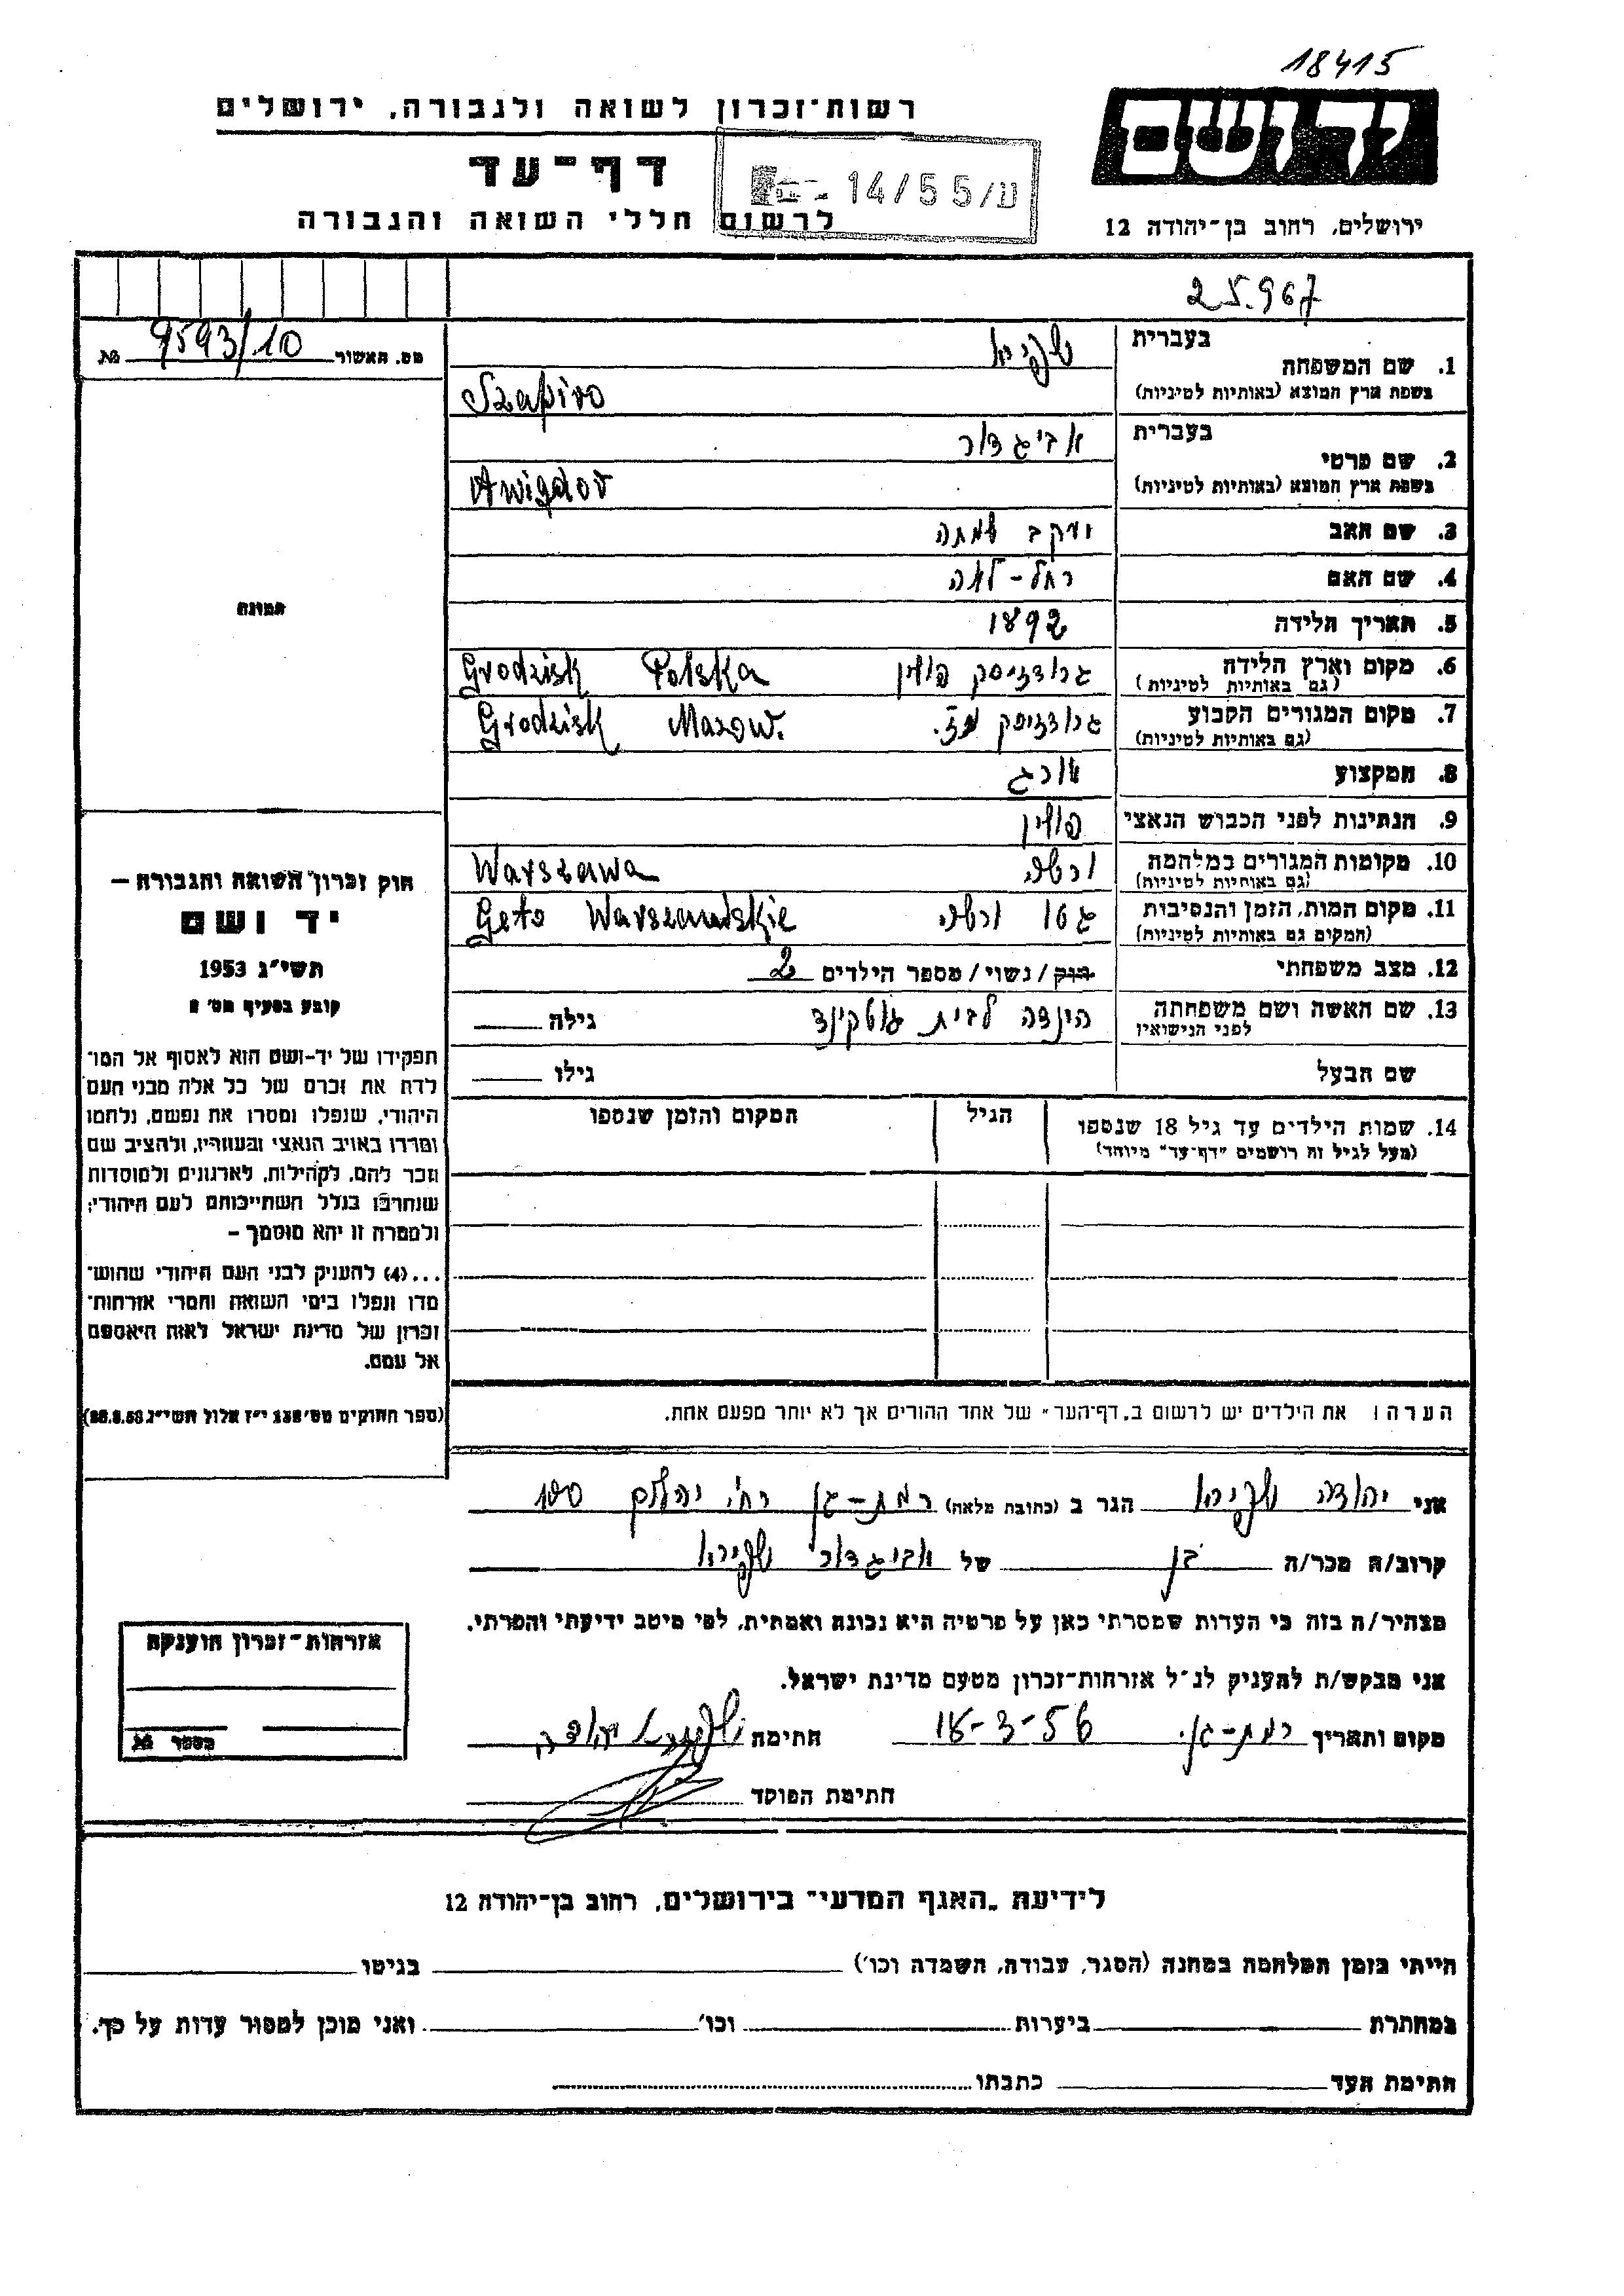 18415
יד ושם
רשות-זכרון לשואה ולגבורה, ירושלים
דף-עד
לרשום חללי השואה והגבורה
ע/55/14
ירושלים, רחוב בן-יהודה 12
25.967
מס. האשור 9593/10 №
1. שם המשפחה
בעברית
שפירא
בשפת ארץ המוצא (באותיות לטיניות)
Szapiro
2. שם פרטי
בעברית
אביגדור
בשפת ארץ המוצא (באותיות לטיניות)
Awigdor
3. שם האב יעקב
4. שם האם רחל-לאה
5. תאריך הלידה 1892
6. מקום וארץ הלידה
(גם באותיות לטיניות)
גרודזיסק פולין Grodzisk Polska
7. מקום המגורים הקבוע
(גם באותיות לטיניות)
גרודזיסק מז. Grodzisk Mazow.
8. המקצוע אורג
9. הנתינות לפני הכבוש הנאצי פולין
10. מקומות המגורים במלחמה
(גם באותיות לטיניות)
ורשה Warszawa
11. מקום המות, הזמן והנסיבות
(המקום גם באותיות לטיניות)
גטו ורשה Geto Warszawskie
12. מצב משפחתי רוק/נשוי/מספר הילדים 2
13. שם האשה ושם משפחתה
לפני הנישואין
הינדה לבית גוטקינד גילה
שם הבעל גילו
14. שמות הילדים עד גיל 18 שנספו
(מעל לגיל זה רושמים "דף-עד" מיוחד)
הגיל
המקום והזמן שנספו
הערה: את הילדים יש לרשום ב„דף-העד" של אחד ההורים אך לא יותר מפעם אחת.
תמונה
חוק זכרון השואה והגבורה —
יד ושם
תשי"ג 1953
קובע בסעיף מס'
תפקידו של יד-ושם הוא לאסוף אל המו־
לדת את זכרם של כל אלה מבני העם
היהודי, שנפלו ומסרו את נפשם, נלחמו
ומרדו באויב הנאצי ובעוזריו, ולהציב שם
וזכר להם, לקהילות, לארגונים ולמוסדות
שנחרבו בגלל השתייכותם לעם היהודי;
ולמטרה זו יהא מוסמך –
...(4) להעניק לבני העם היהודי שהוש־
מדו ונפלו בימי השואה והמרי אזרחות־
זכרון של מדינת ישראל לאות היאספם
אל עמם.
(ספר החוקים מס' 132 י"ז אלול תשי"ג
אני יהודה שפירא הגר ב (כתובת מלאה) רמת-גן רח' יהלום 100
קרוב/ה מכר/ה בן של אביגדור שפירא
מצהיר/ה בזה כי העדות שמסרתי כאן על פרטיה היא נכונה ואמתית, לפי מיטב ידיעתי והכרתי.
אני מבקש/ת להעניק לנ"ל אזרחות-זכרון מטעם מדינת ישראל.
מקום ותאריך רמת-גן. 18-3-56 חתימה שפירא יהודה
חתימת הפוקד
אזרחות-זכרון הוענקה
מספר №
לידיעת „האגף המדעי" בירושלים, רחוב בן-יהודה 12
הייתי בזמן המלחמה במחנה (הסגר, עבודה, השמדה וכו') בגיטו
במחתרת ביערות וכו' ואני מוכן למסור עדות על כך.
חתימת העד כתבתו